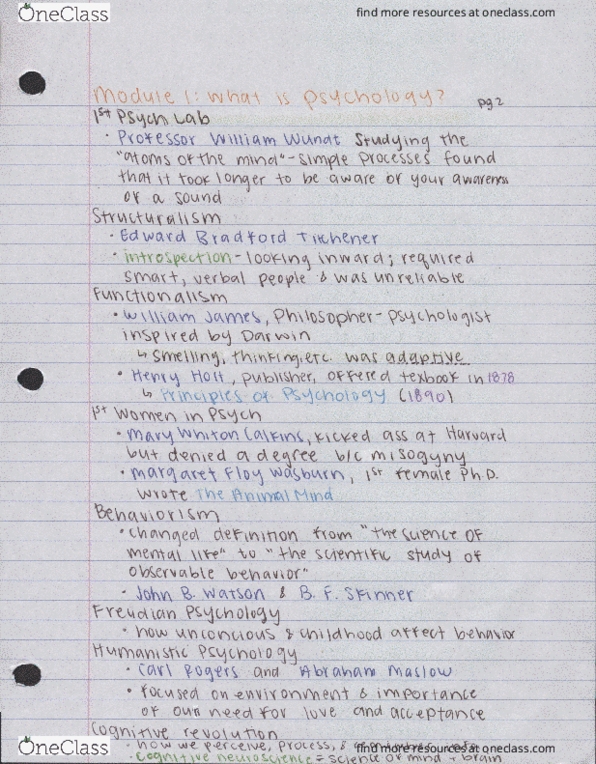 OneClass
find more resources at oneclass.com
Module 1: What is psychology?
pg 2
1st Psych Lab
• Professor William Wundt studying the
"atoms of the mind" - simple processes found
that it took longer to be aware of your awareness
of a sound
Structuralism
• Edward Bradford Titchener
• introspection - looking inward; required
smart, verbal people & was unreliable
Functionalism
• William James, Philosopher-psychologist
inspired by Darwin
↳ Smelling, thinking, etc. was adaptive
• Henry Holt, publisher, offered texbook in 1878
↳ Principles of Psychology (1890)
1st Women in Psych
• Mary Whiton Calkins, kicked ass at Harvard
but denied a degree b/c misogyny
• Margaret Floy Wasburn, 1st female Ph.D.
wrote The Animal Mind
Behaviorism
• changed definition from "the science of
mental life" to "the scientific study of
observable behavior"
• John B. Watson & B. F. Skinner
Freudian Psychology
• how unconcious & childhood affect behavior
Humanistic Psychology
• Carl Rogers and Abraham Maslow
• focused on environment & importance
of our need for love and acceptance
Cognitive revolution
• how we perceive, process, &
• Cognitive neuroscience = science of mind + brain
OneClass
find more resources at oneclass.com